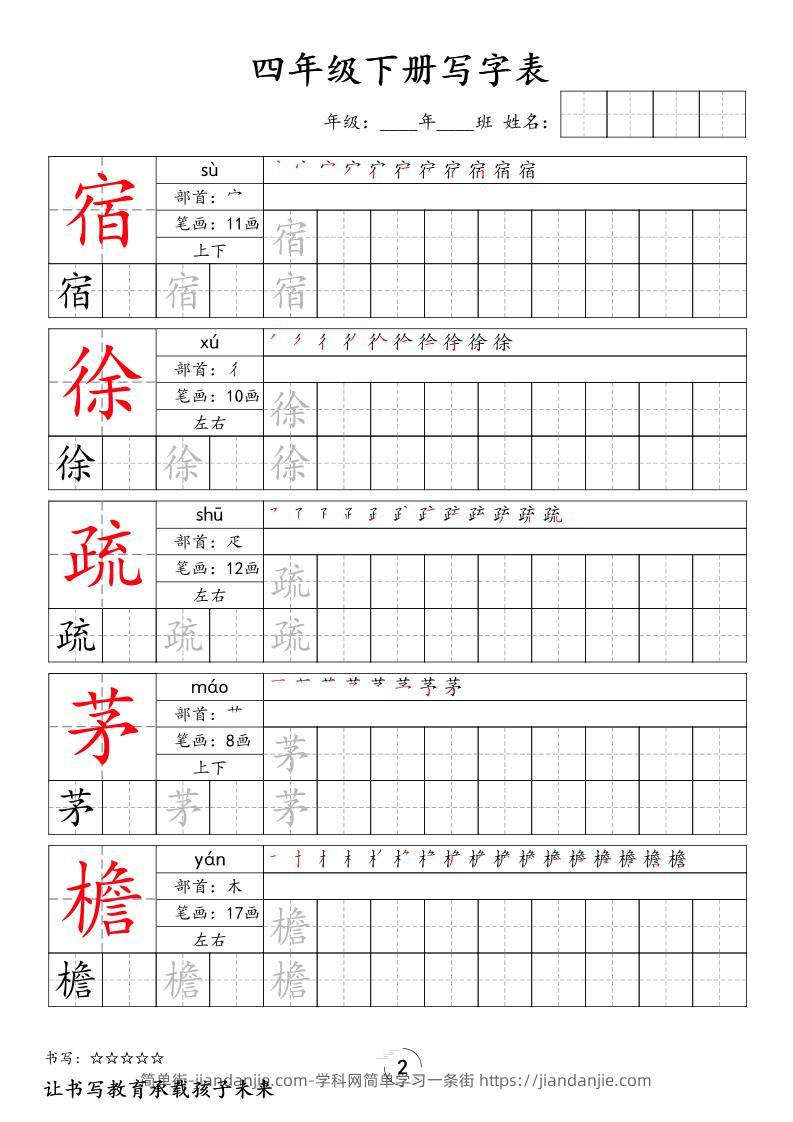 四年级下册写字表
年级：____年____班 姓名：
宿
sù
部首：宀
笔画：11画
上下
宿
宿 宿 宿
徐
xú
部首：彳
笔画：10画
左右
徐
徐 徐 徐
疏
shū
部首：疋
笔画：12画
左右
疏
疏 疏 疏
茅
máo
部首：艹
笔画：8画
上下
茅
茅 茅 茅
檐
yán
部首：木
笔画：17画
左右
檐
檐 檐 檐
书写：☆☆☆☆☆
2
简单街-jiandanjie.com-学科网简单学习一条街 https://jiandanjie.com
让书写教育承载孩子未来